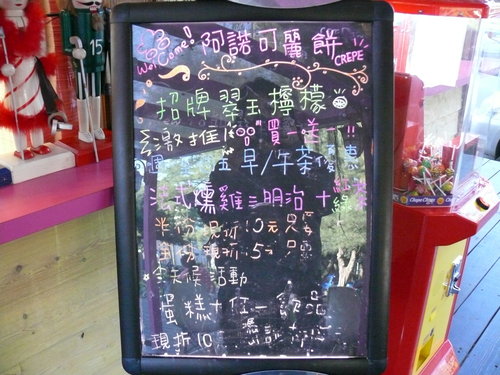 Welcome! 阿諾可麗餅
CREPE
招牌 翠玉檸檬
激推!! 買一送一!!
週 五 早/午茶優惠
法式燻雞三明治 + 紅茶
半份 現折10元 只要
全份 現折15元 只要
今天候活動
蛋糕+任一飲品
現折10
15
Chupa Chups